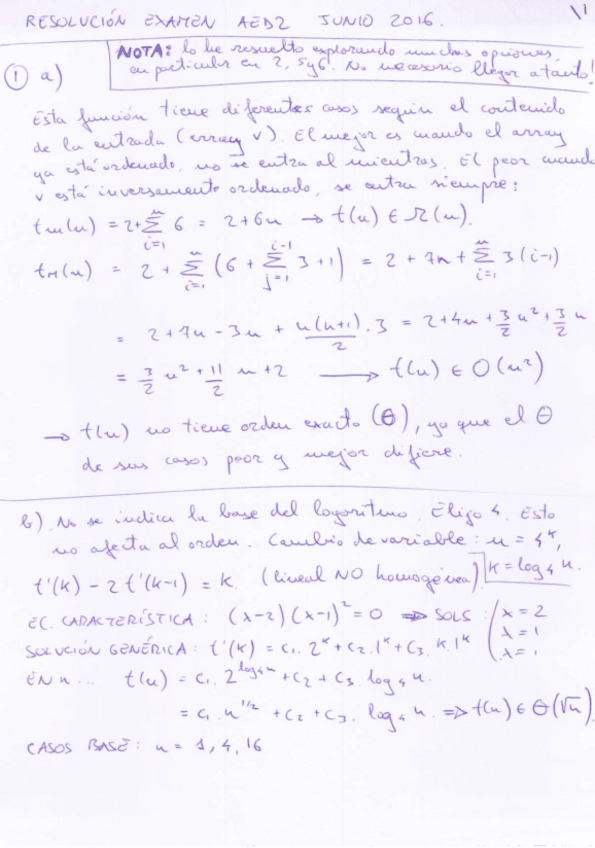 RESOLUCIÓN EXAMEN AED2 JUNIO 2016. \1
NOTA: lo he resuelto explorando muchas opciones,
en particular en 2, 5 y 6. No necesario llegar a tanto!
① a)
Esta función tiene diferentes casos según el contenido
de la entrada (array v). El mejor es cuando el array
ya está ordenado, no se entra al mientras. El peor cuando
v está inversamente ordenado, se entra siempre:
tm(n) = 2+∑_{i=1}^{n} 6 = 2+6n → t(n) ∈ Ω(n).
t_M(n) = 2 + ∑_{i=1}^{n} (6 + ∑_{j=1}^{i-1} 3 + 1) = 2 + 7n + ∑_{i=1}^{n} 3(i-1)
= 2+7n - 3n + n(n+1)/2 · 3 = 2+4n + 3/2 n² + 3/2 n
= 3/2 n² + 11/2 n + 2 → t(n) ∈ O(n²)
→ t(n) no tiene orden exacto (Θ), ya que el Θ
de sus casos peor y mejor difiere.
b). No se indica la base del logaritmo. Eligo 4. Esto
no afecta al orden. Cambio de variable: n = 4^k,
t'(k) - 2t'(k-1) = k. (lineal NO homogénea) k = log₄ n.
EC. CARACTERÍSTICA: (x-2)(x-1)² = 0 ⇒ SOLS: x = 2
x = 1
x = 1
SOLUCIÓN GENÉRICA: t'(k) = c₁·2^k + c₂·1^k + c₃·k·1^k
EN n ... t(n) = c₁·2^{log₄n} + c₂ + c₃·log₄ n.
= c₁·n^{1/2} + c₂ + c₃·log₄ n. ⇒ t(n) ∈ Θ(√n).
CASOS BASE: n = 1, 4, 16